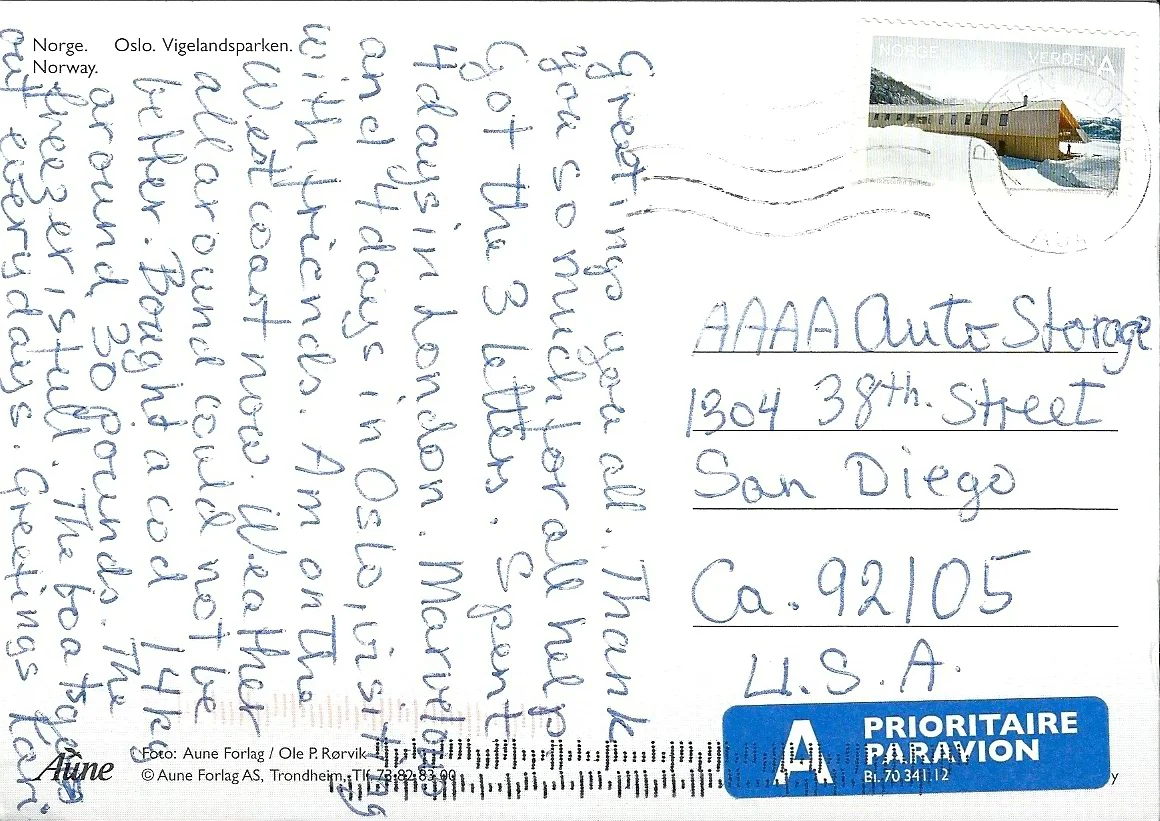 Norge. Oslo. Vigelandsparken.
Norway.
Greetings you all. Thank
you so much for all help
Got the 3 letters. Spent
4 days in London. Marvelous
and 4 days in Oslo, visiting
with friends. Am on the
West coast now. Weather
all around could not be
better. Bought a cod 14 kg
around 30 pounds. The
freezer is full. The boat goes
out every days. Greetings Kari
NORGE VERDEN A
AAAA Auto Storage
1304 38th. Street
San Diego
Ca. 92105
U.S.A.
A PRIORITAIRE
PAR AVION
Bl. 70 341.12
Aune
Foto: Aune Forlag / Ole P. Rørvik
© Aune Forlag AS, Trondheim. Tlf. 73 82 83 00
y